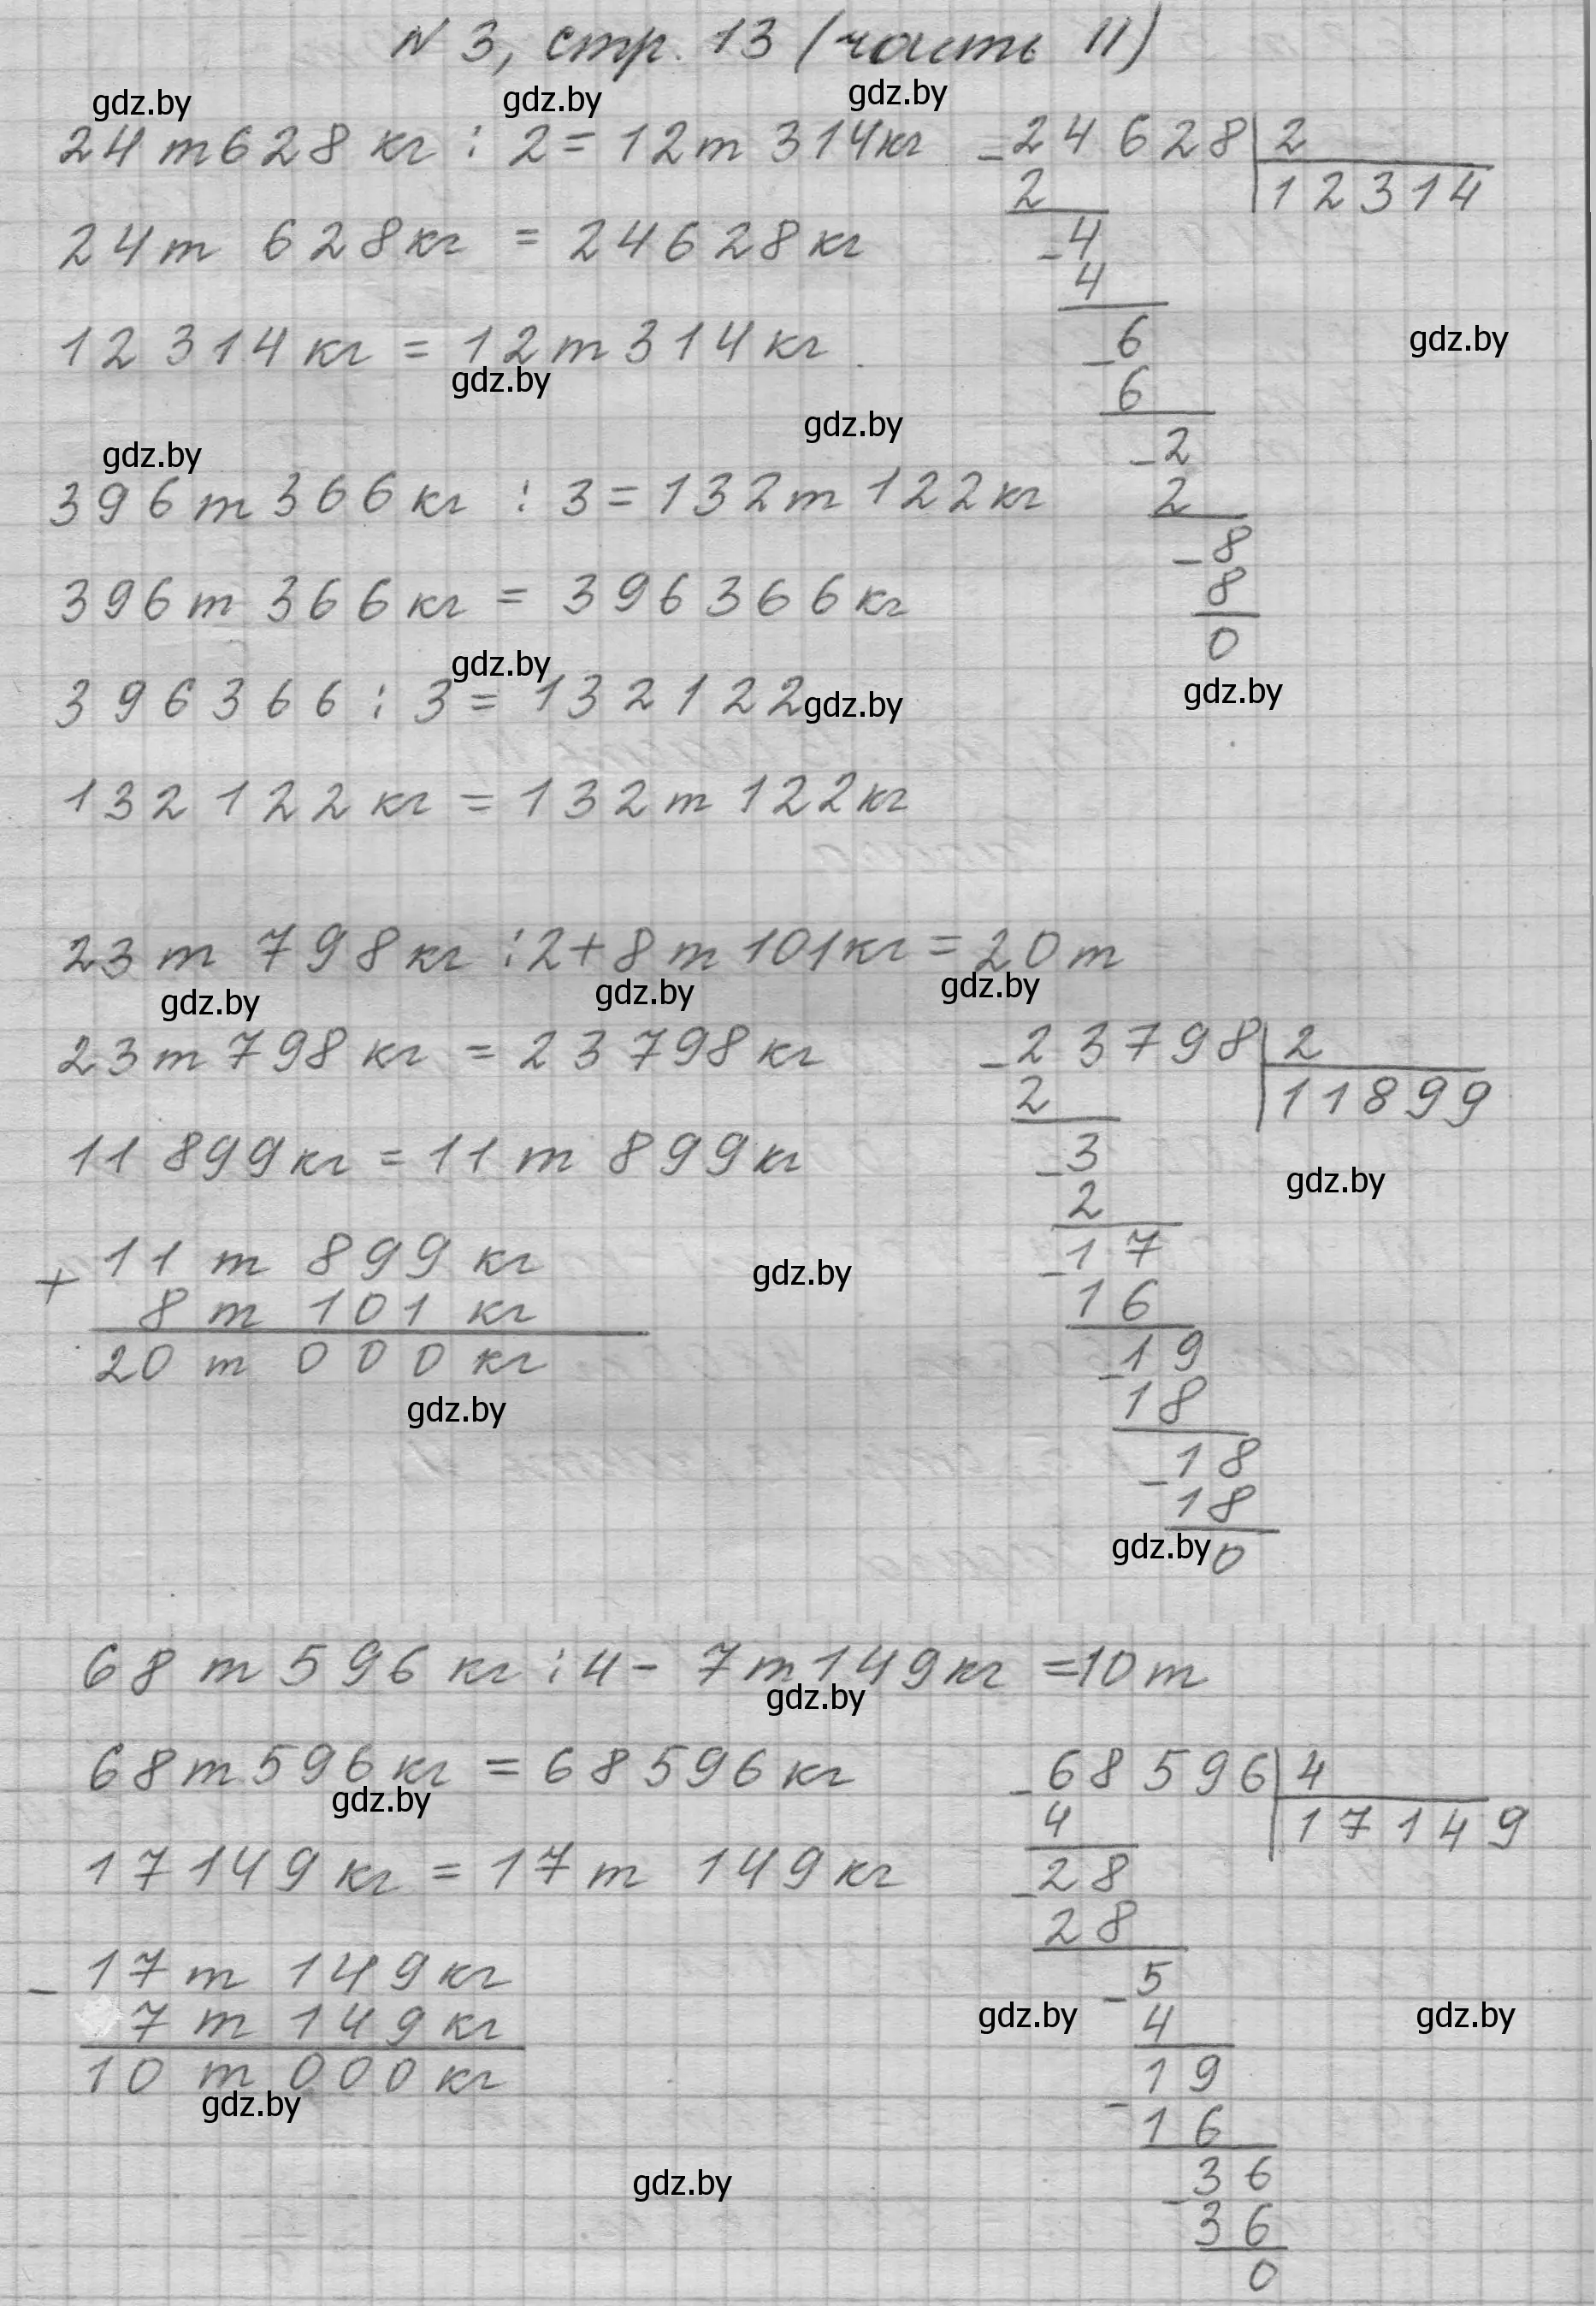 N 3, стр. 13 (часть II)
gdz.by gdz.by gdz.by
24 т 628 кг : 2 = 12 т 314 кг
24 т 628 кг = 24628 кг
12 314 кг = 12 т 314 кг
gdz.by
gdz.by
gdz.by
- 24628 | 2
2 | 12314
- 4
4
- 6
gdz.by
6
- 2
2
- 8
8
0
gdz.by
396 т 366 кг : 3 = 132 т 122 кг
396 т 366 кг = 396366 кг
gdz.by
396366 : 3 = 132122
gdz.by
132 122 кг = 132 т 122 кг
23 т 798 кг : 2 + 8 т 101 кг = 20 т
gdz.by gdz.by gdz.by
23 т 798 кг = 23798 кг
11 899 кг = 11 т 899 кг
+ 11 т 899 кг
8 т 101 кг
20 т 000 кг
gdz.by
gdz.by
- 23798 | 2
2 | 11899
- 3
gdz.by
2
- 17
16
- 19
18
- 18
18
gdz.by
0
68 т 596 кг : 4 - 7 т 149 кг = 10 т
gdz.by
68 т 596 кг = 68596 кг
gdz.by
17149 кг = 17 т 149 кг
- 17 т 149 кг
7 т 149 кг
10 т 000 кг
gdz.by
gdz.by
- 68596 | 4
4 | 17149
- 28
28
- 5
gdz.by gdz.by
4
- 19
16
- 36
36
0